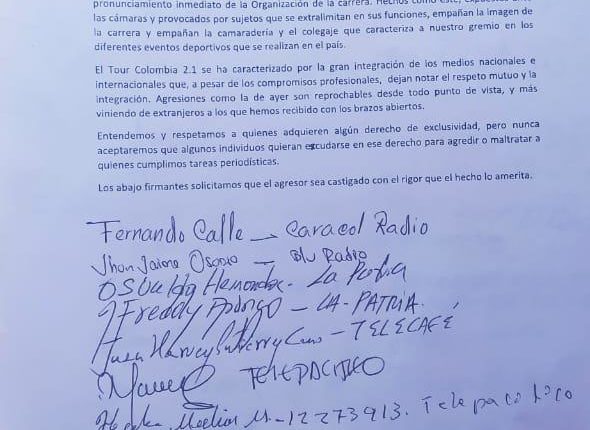 pronunciamiento inmediato de la Organización de la carrera. Hechos como este,
las cámaras y provocados por sujetos que se extralimitan en sus funciones, empañan la imagen de
la carrera y empañan la camaradería y el colegaje que caracteriza a nuestro gremio en los
diferentes eventos deportivos que se realizan en el país.
El Tour Colombia 2.1 se ha caracterizado por la gran integración de los medios nacionales e
internacionales que, a pesar de los compromisos profesionales, dejan notar el respeto mutuo y la
integración. Agresiones como la de ayer son reprochables desde todo punto de vista, y más
viniendo de extranjeros a los que hemos recibido con los brazos abiertos.
Entendemos y respetamos a quienes adquieren algún derecho de exclusividad, pero nunca
aceptaremos que algunos individuos quieran escudarse en ese derecho para agredir o maltratar a
quienes cumplimos tareas periodísticas.
Los abajo firmantes solicitamos que el agresor sea castigado con el rigor que el hecho lo amerita.
Fernando Calle - Caracol Radio
Jhon Jaime Osorio - Blu Radio
Osualdo Hernandez - La
Freddy - LA-PATRIA.
Harvey - TELECAFÉ
TELEPACIFICO
12273913. Telepacifico